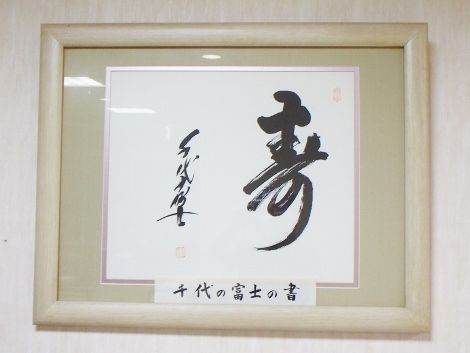 寿
千代の富士
千代の富士の書